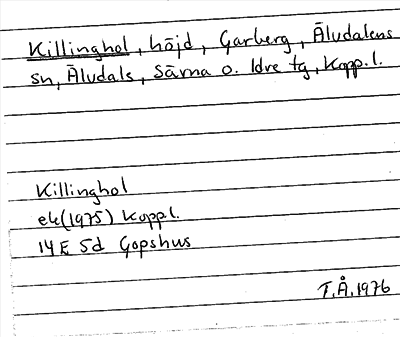 Killinghol, höjd, Garberg, Äludalens
sn, Äludals, Särna o. Idre tg, Kopp.l.
Killinghol
ek(1975) Koppl.
14E 5d Gopshus
T.Å.1976